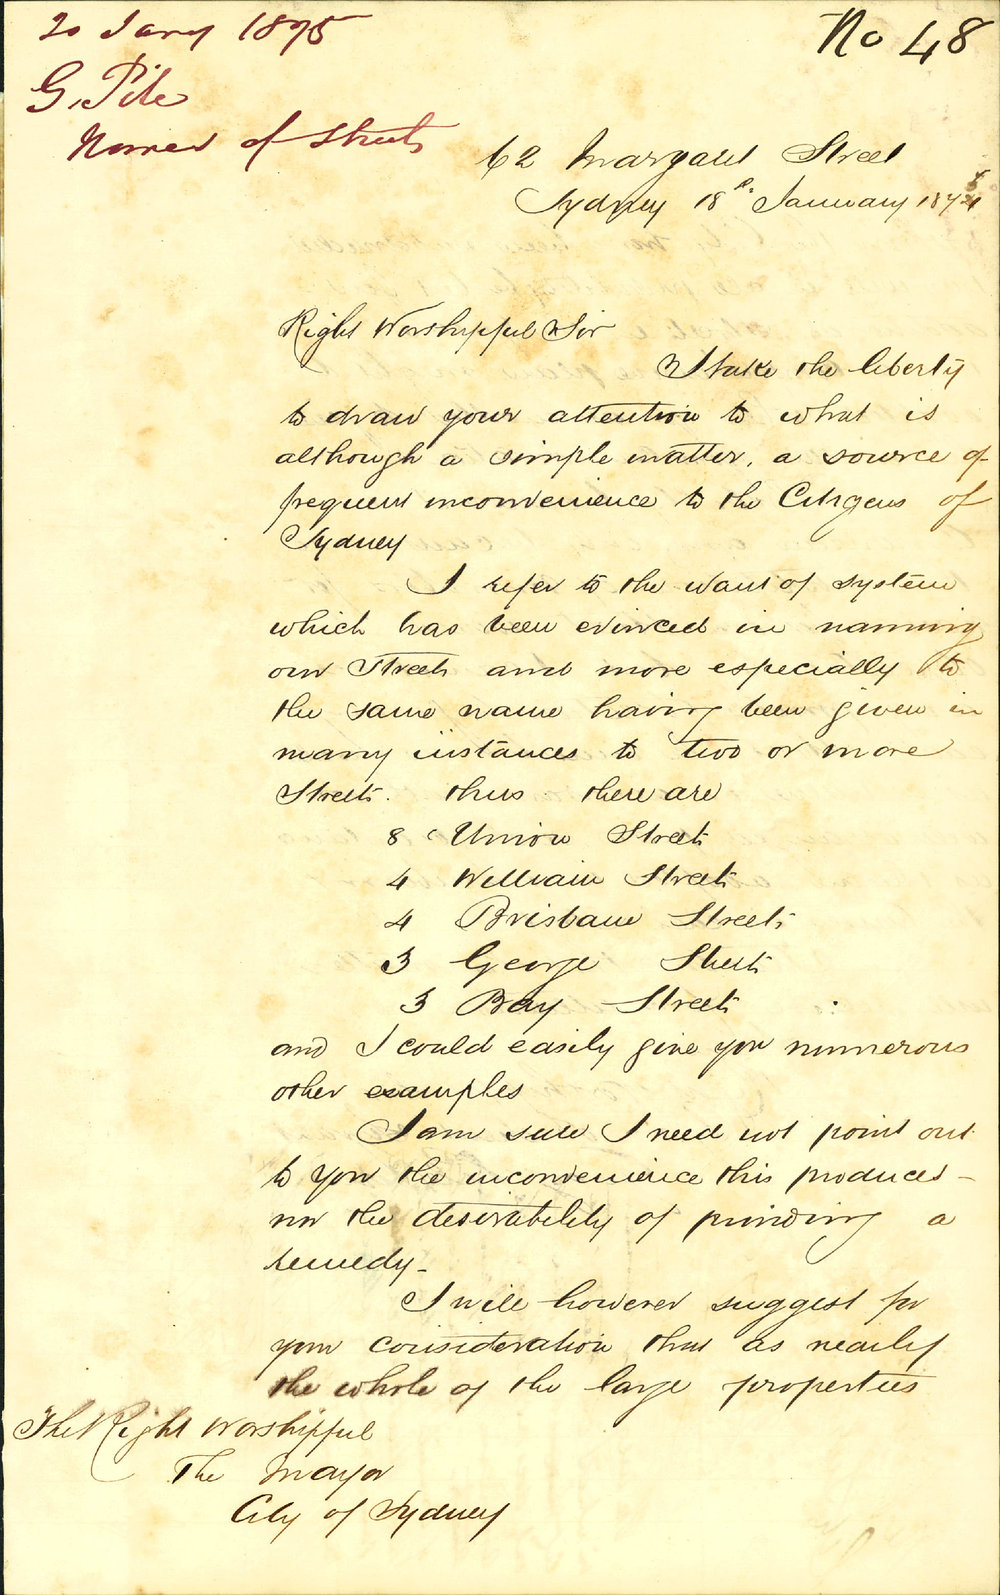 20 Jany 1875
No 48
G. Pile
Names of Streets
62 Margaret Street
Sydney 18th January 1875
Right Worshipful Sir
I take the liberty
to draw your attention to what is
although a simple matter, a source of
frequent inconvenience to the Citizens of
Sydney
I refer to the want of system
which has been evinced in naming
our Streets and more especially to
the same name having been given in
many instances to two or more
Streets. thus there are
8 Union Streets
4 William Streets
4 Brisbane Streets
3 George Streets
3 Bay Streets
and I could easily give you numerous
other examples
I am sure I need not point out
to you the inconvenience this produces -
nor the desirability of finding a
remedy -
I will however suggest for
your consideration that as nearly
the whole of the large properties
The Right Worshipful
The Mayor
City of Sydney